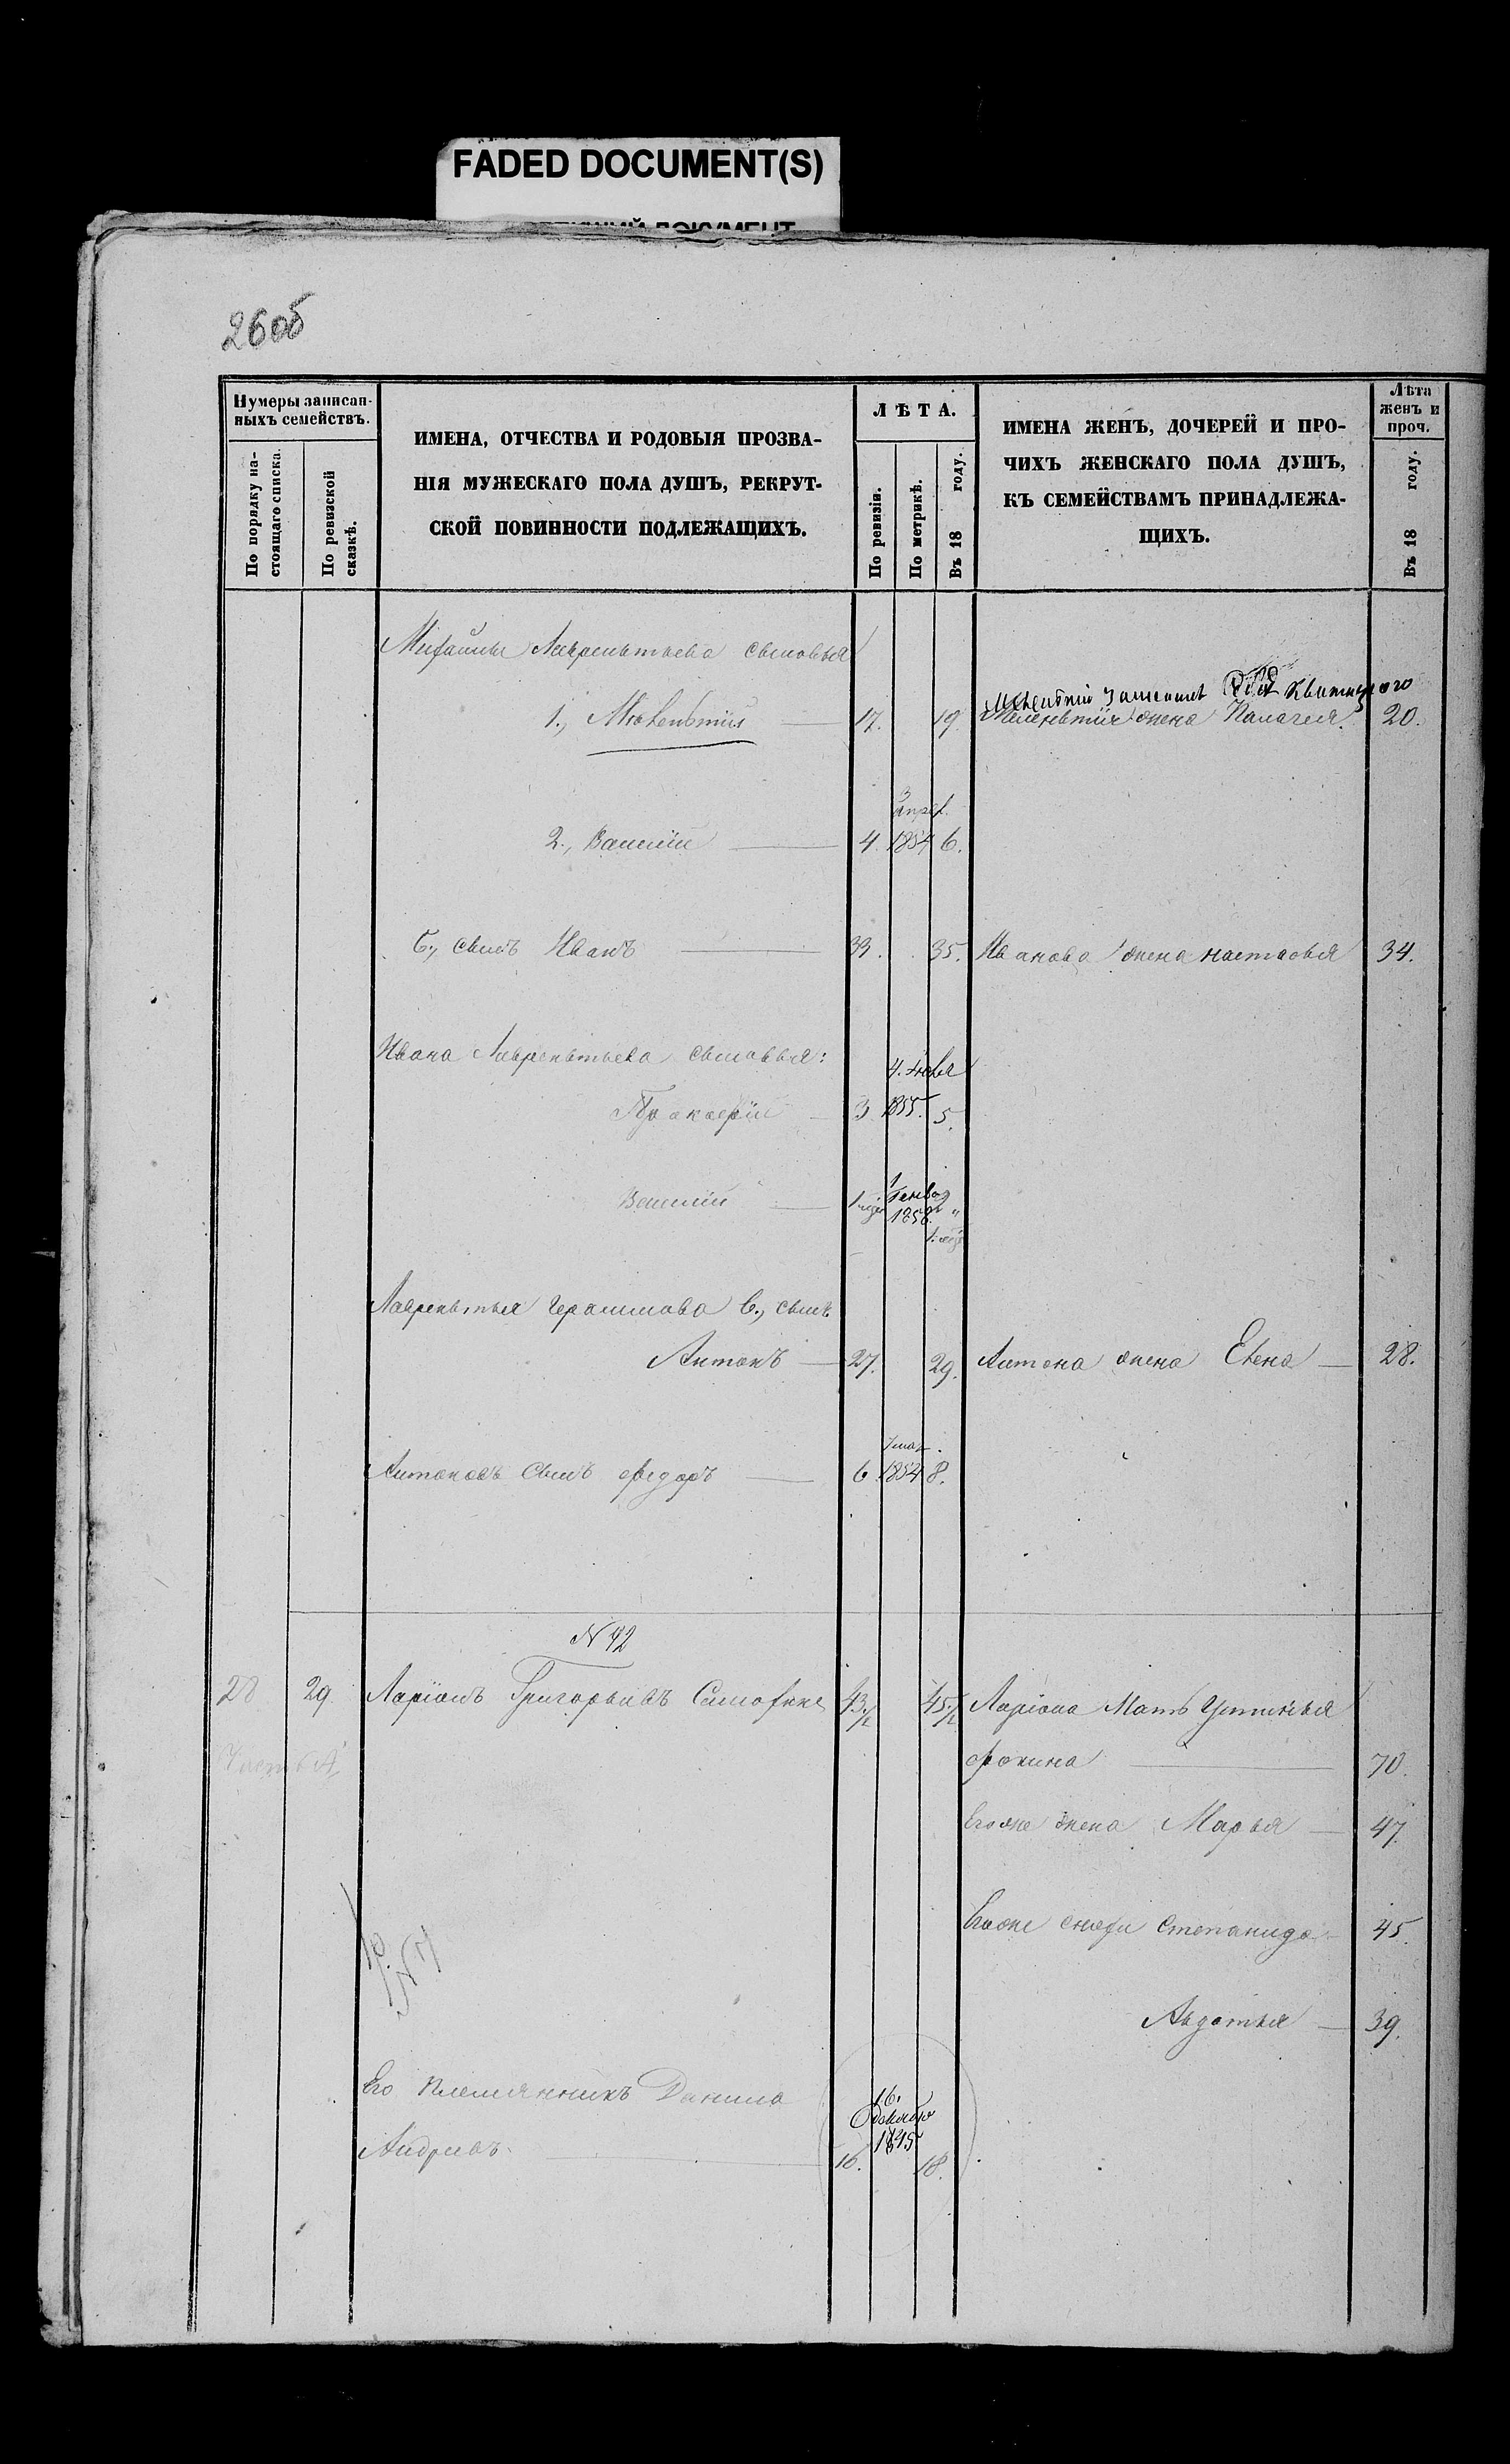 FADED DOCUMENT(S)
26об
Нумеры записан-
ныхъ семействъ.
По порядку на-
стоящаго списка.
По ревизской
сказкѣ.
ИМЕНА, ОТЧЕСТВА И РОДОВЫЯ ПРОЗВА-
НІЯ МУЖЕСКАГО ПОЛА ДУШЪ, РЕКРУТ-
СКОЙ ПОВИННОСТИ ПОДЛЕЖАЩИХЪ.
ЛѢТА.
По ревизіи.
По метрикѣ.
Въ 18 году.
ИМЕНА ЖЕНЪ, ДОЧЕРЕЙ И ПРО-
ЧИХЪ ЖЕНСКАГО ПОЛА ДУШЪ,
КЪ СЕМЕЙСТВАМЪ ПРИНАДЛЕЖА-
ЩИХЪ.
Лѣта
женъ и
проч.
Въ 18 году.
Михайлы Лаврентьева сыновья
1., 17. 19. жена Палагея. 20.
3
апрел.
2., Василій 4. 1854 6.
Б., сынъ Иванъ 33. 35. Иванова жена настасья 34.
Ивана Лаврентьева сыновья:
4. июля
Прокофій 3 1855. 5.
1 Генвар
Василій 1858.
Лаврентья Герасимова В., сынъ
Антонъ 27. 29. Антона жена Елена 28.
Антоновъ Сынъ Федоръ 6 1854 8.
N 42
28 29. Ларіонъ Григорьевъ 43.½ 45.½ Ларіона Мать Устинья
Фокина 70.
Егоже жена Марья 47.
Егоже снохи Степанида 45.
Авдотья 39.
Его племянникъ Данила 16.
Андреевъ 16. 1845 18.